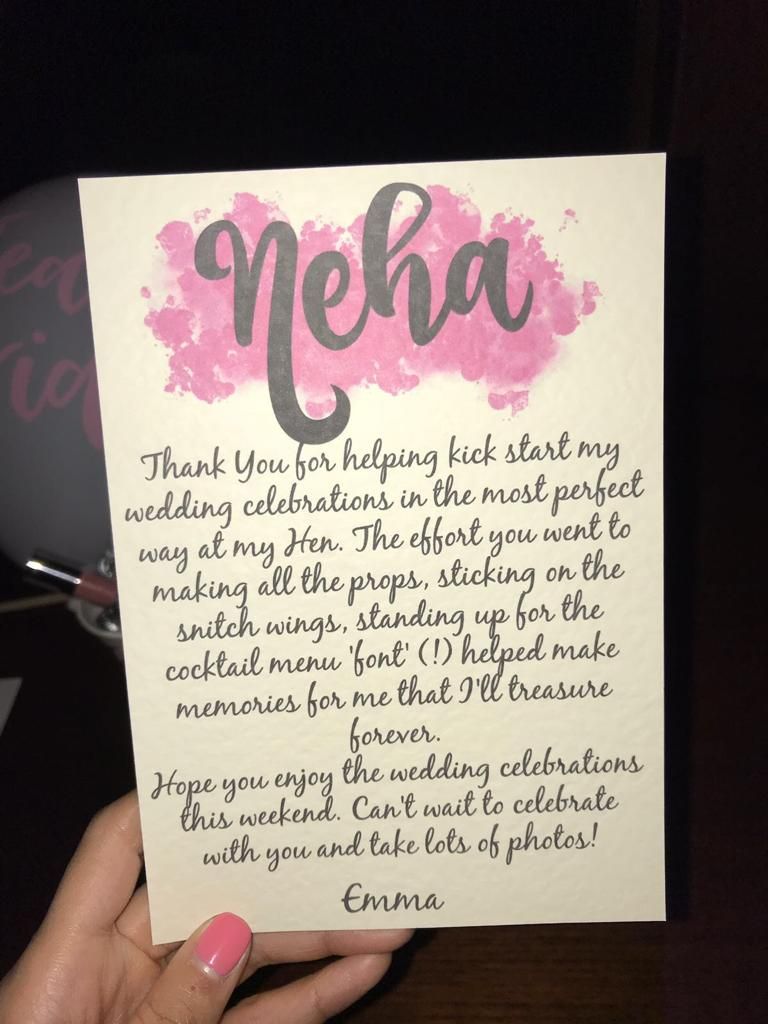 Neha
Thank You for helping kick start my
wedding celebrations in the most perfect
way at my Hen. The effort you went to
making all the props, sticking on the
snitch wings, standing up for the
cocktail menu 'font' (!) helped make
memories for me that I'll treasure
forever.
Hope you enjoy the wedding celebrations
this weekend. Can't wait to celebrate
with you and take lots of photos!
Emma